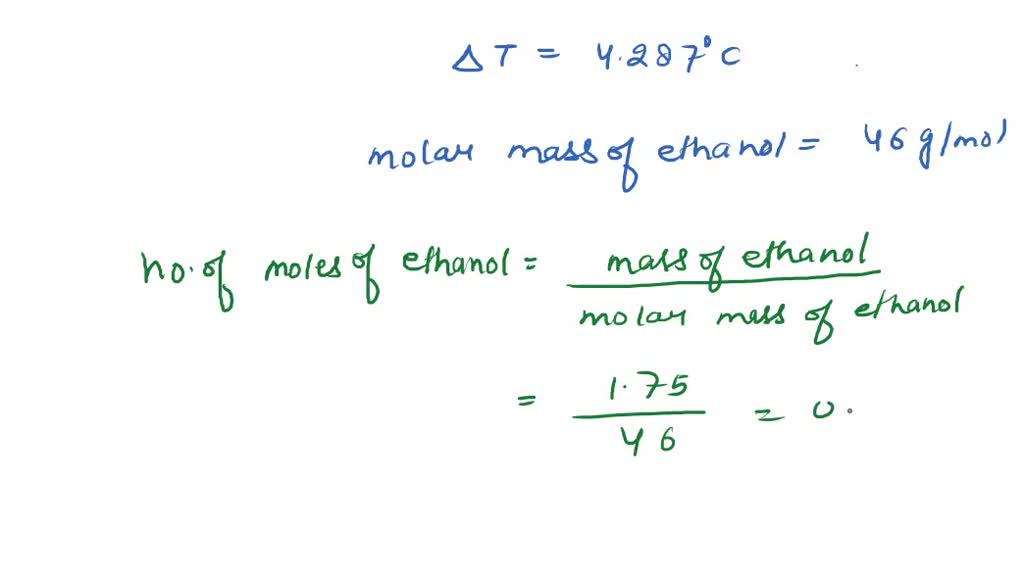 ΔT = 4.287°C
molar mass of ethanol = 46 g/mol
no. of moles of ethanol = mass of ethanol
molar mass of ethanol
= 1.75 = 0.
46